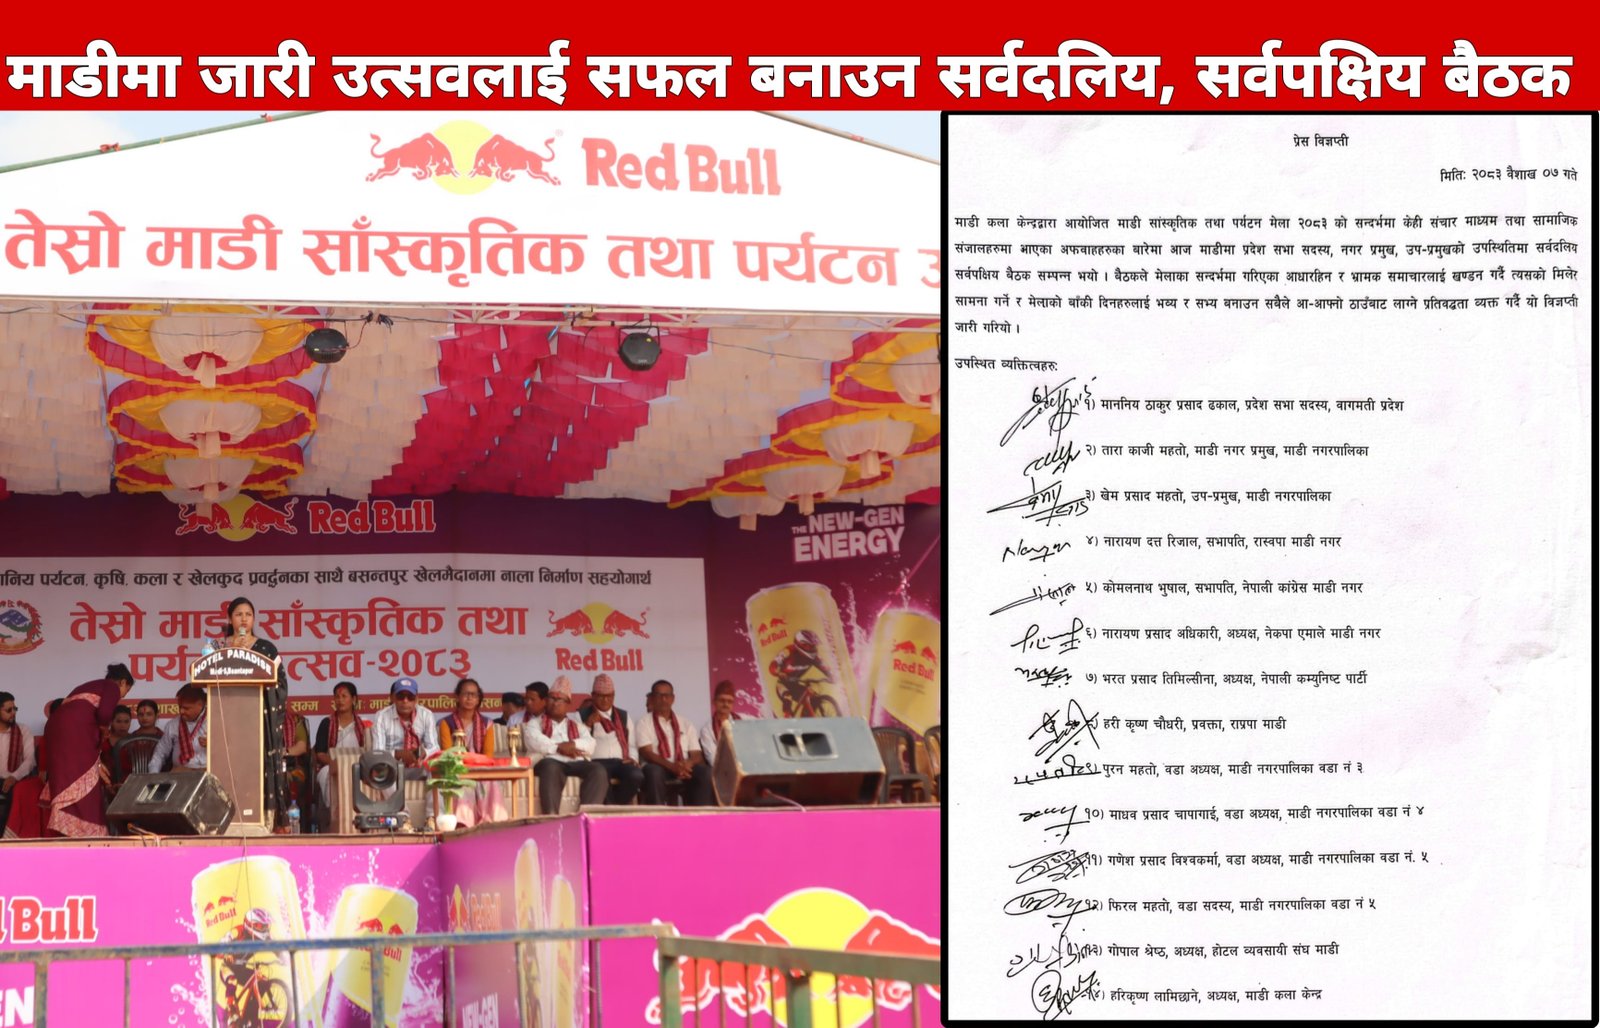 माडीमा जारी उत्सवलाई सफल बनाउन सर्वदलिय, सर्वपक्षिय बैठक
Red Bull
तेस्रो माडी साँस्कृतिक तथा पर्यटन
Red Bull
THE NEW-GEN
ENERGY
पर्यटन, कृषि, कला र खेलकुद प्रवर्द्धनका साथै बसन्तपुर खेलमैदानमा नाला निर्माण सहयोगार्थ
तेस्रो माडी साँस्कृतिक तथा
२०८३
Red Bull
HOTEL PARADISE
Madi-5, Basantapur
Red Bull
Red Bull
Red Bull
Red Bull
Bull
प्रेस विज्ञप्ती
मितिः २०८३ वैशाख ०७ गते
माडी कला केन्द्रद्वारा आयोजित माडी सांस्कृतिक तथा पर्यटन मेला २०८३ को सन्दर्भमा केही संचार माध्यम तथा सामाजिक
संजालहरुमा आएका अफवाहहरुका बारेमा आज माडीमा प्रदेश सभा सदस्य, नगर प्रमुख, उप-प्रमुखको उपस्थितिमा सर्वदलिय
सर्वपक्षिय बैठक सम्पन्न भयो । बैठकले मेलाका सन्दर्भमा गरिएका आधारहिन र भ्रामक समाचारलाई खण्डन गर्दै त्यसको मिलेर
सामना गर्ने र मेलाको बाँकी दिनहरुलाई भव्य र सभ्य बनाउन सबैले आ-आफ्नो ठाउँबाट लाग्ने प्रतिवद्धता व्यक्त गर्दै यो विज्ञप्ती
जारी गरियो ।
उपस्थित व्यक्तित्वहरु:
१) माननिय ठाकुर प्रसाद ढकाल, प्रदेश सभा सदस्य, वागमती प्रदेश
२) तारा काजी महतो, माडी नगर प्रमुख, माडी नगरपालिका
३) खेम प्रसाद महतो, उप-प्रमुख, माडी नगरपालिका
४) नारायण दत्त रिजाल, सभापति, रास्वपा माडी नगर
५) कोमलनाथ भुषाल, सभापति, नेपाली कांग्रेस माडी नगर
६) नारायण प्रसाद अधिकारी, अध्यक्ष, नेकपा एमाले माडी नगर
७) भरत प्रसाद तिमिल्सीना, अध्यक्ष, नेपाली कम्युनिष्ट पार्टी
हरी कृष्ण चौधरी, प्रवक्ता, राप्रपा माडी
९) पुरन महतो, वडा अध्यक्ष, माडी नगरपालिका वडा नं ३
१०) माधव प्रसाद चापागाई, वडा अध्यक्ष, माडी नगरपालिका वडा नं ४
११) गणेश प्रसाद विश्वकर्मा, वडा अध्यक्ष, माडी नगरपालिका वडा नं. ५
१२) फिरल महतो, वडा सदस्य, माडी नगरपालिका वडा नं ५
१३) गोपाल श्रेष्ठ, अध्यक्ष, होटल व्यवसायी संघ माडी
१४) हरिकृष्ण लामिछाने, अध्यक्ष, माडी कला केन्द्र